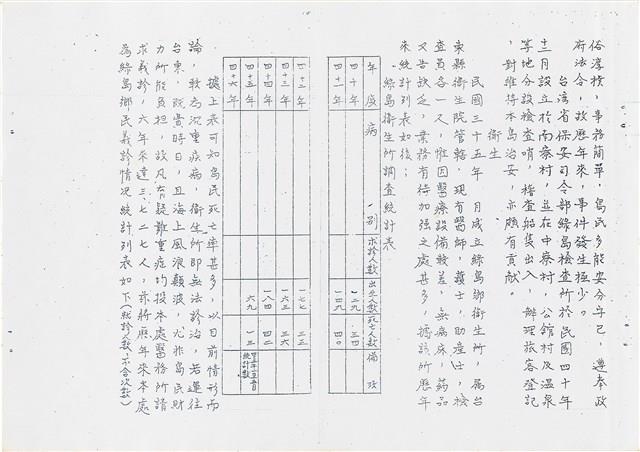 俗淳樸，事務簡單，島民多能安分守己，遵奉政
府法令，故歷年來，事件發生極少。
台灣省保安司令部綠島檢查所於民國四十年
十二月設立於南寮村，並在中寮村，公館村及溫泉
等地分設檢查哨，稽查船隻出入，辦理旅客登記
，對維持本島治安，亦頗有貢獻。
衛生
民國三十五年 月成立綠島鄉衛生所，屬台
東縣衛生院管轄，現有醫師，護士，助產士，檢
查員各一人，惟因醫療設備較差，無病床，藥品
又告缺乏，業務有待加強之處甚多，據該所歷年
來統計列表如後：
綠島衛生所調查統計表
年度 病別 求診人數 出生人數 死亡人數 備攷
四十年 一二九 三四
四十一年 一四九 四〇
四十二年 一七七 三三
四十三年 一六三 三六
四十四年 一八四 四二
四十五年 六九 一三
四十六年
據上表可知島民死亡率甚多，以目前情形而
論，較為沉重疾病，衛生所即無法診治，若運往
台東，既費時日，且海上風浪顛波，尤非島民財
力所能負担，故凡有疑難重症均投本處醫務所請
求義診，六年來達三、七二七人，茲將歷年來本處
為綠島鄉民義診情況統計列表如下(就診人數，不含次數)